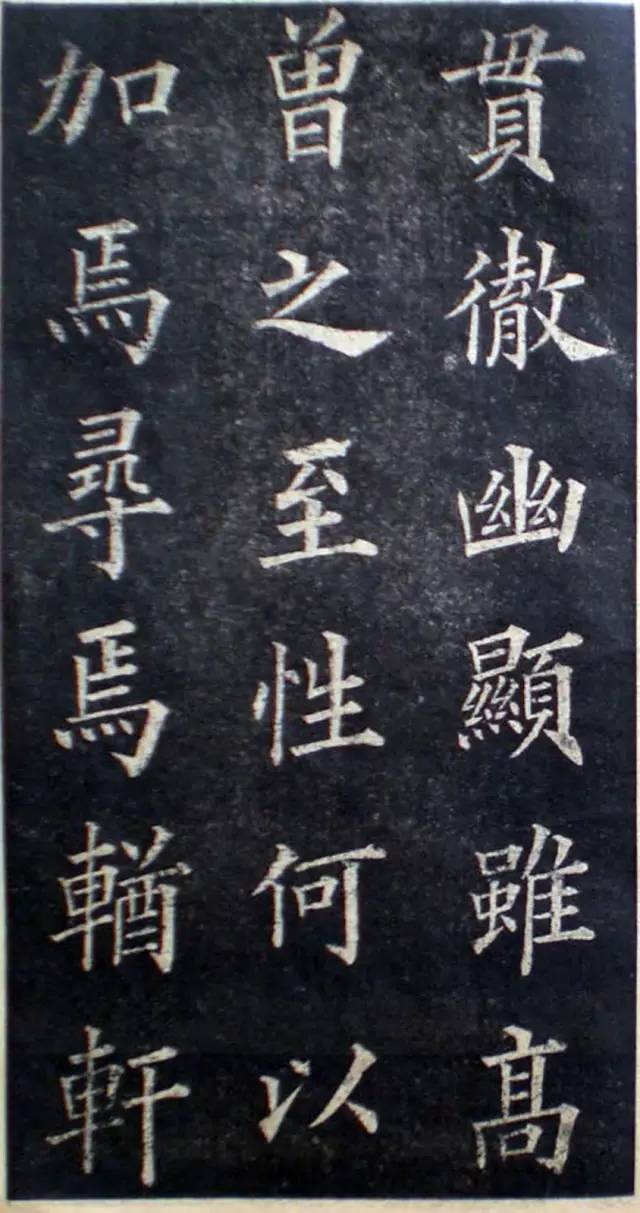 貫徹幽顯雖高
曽之至性何以
加焉尋焉輶軒